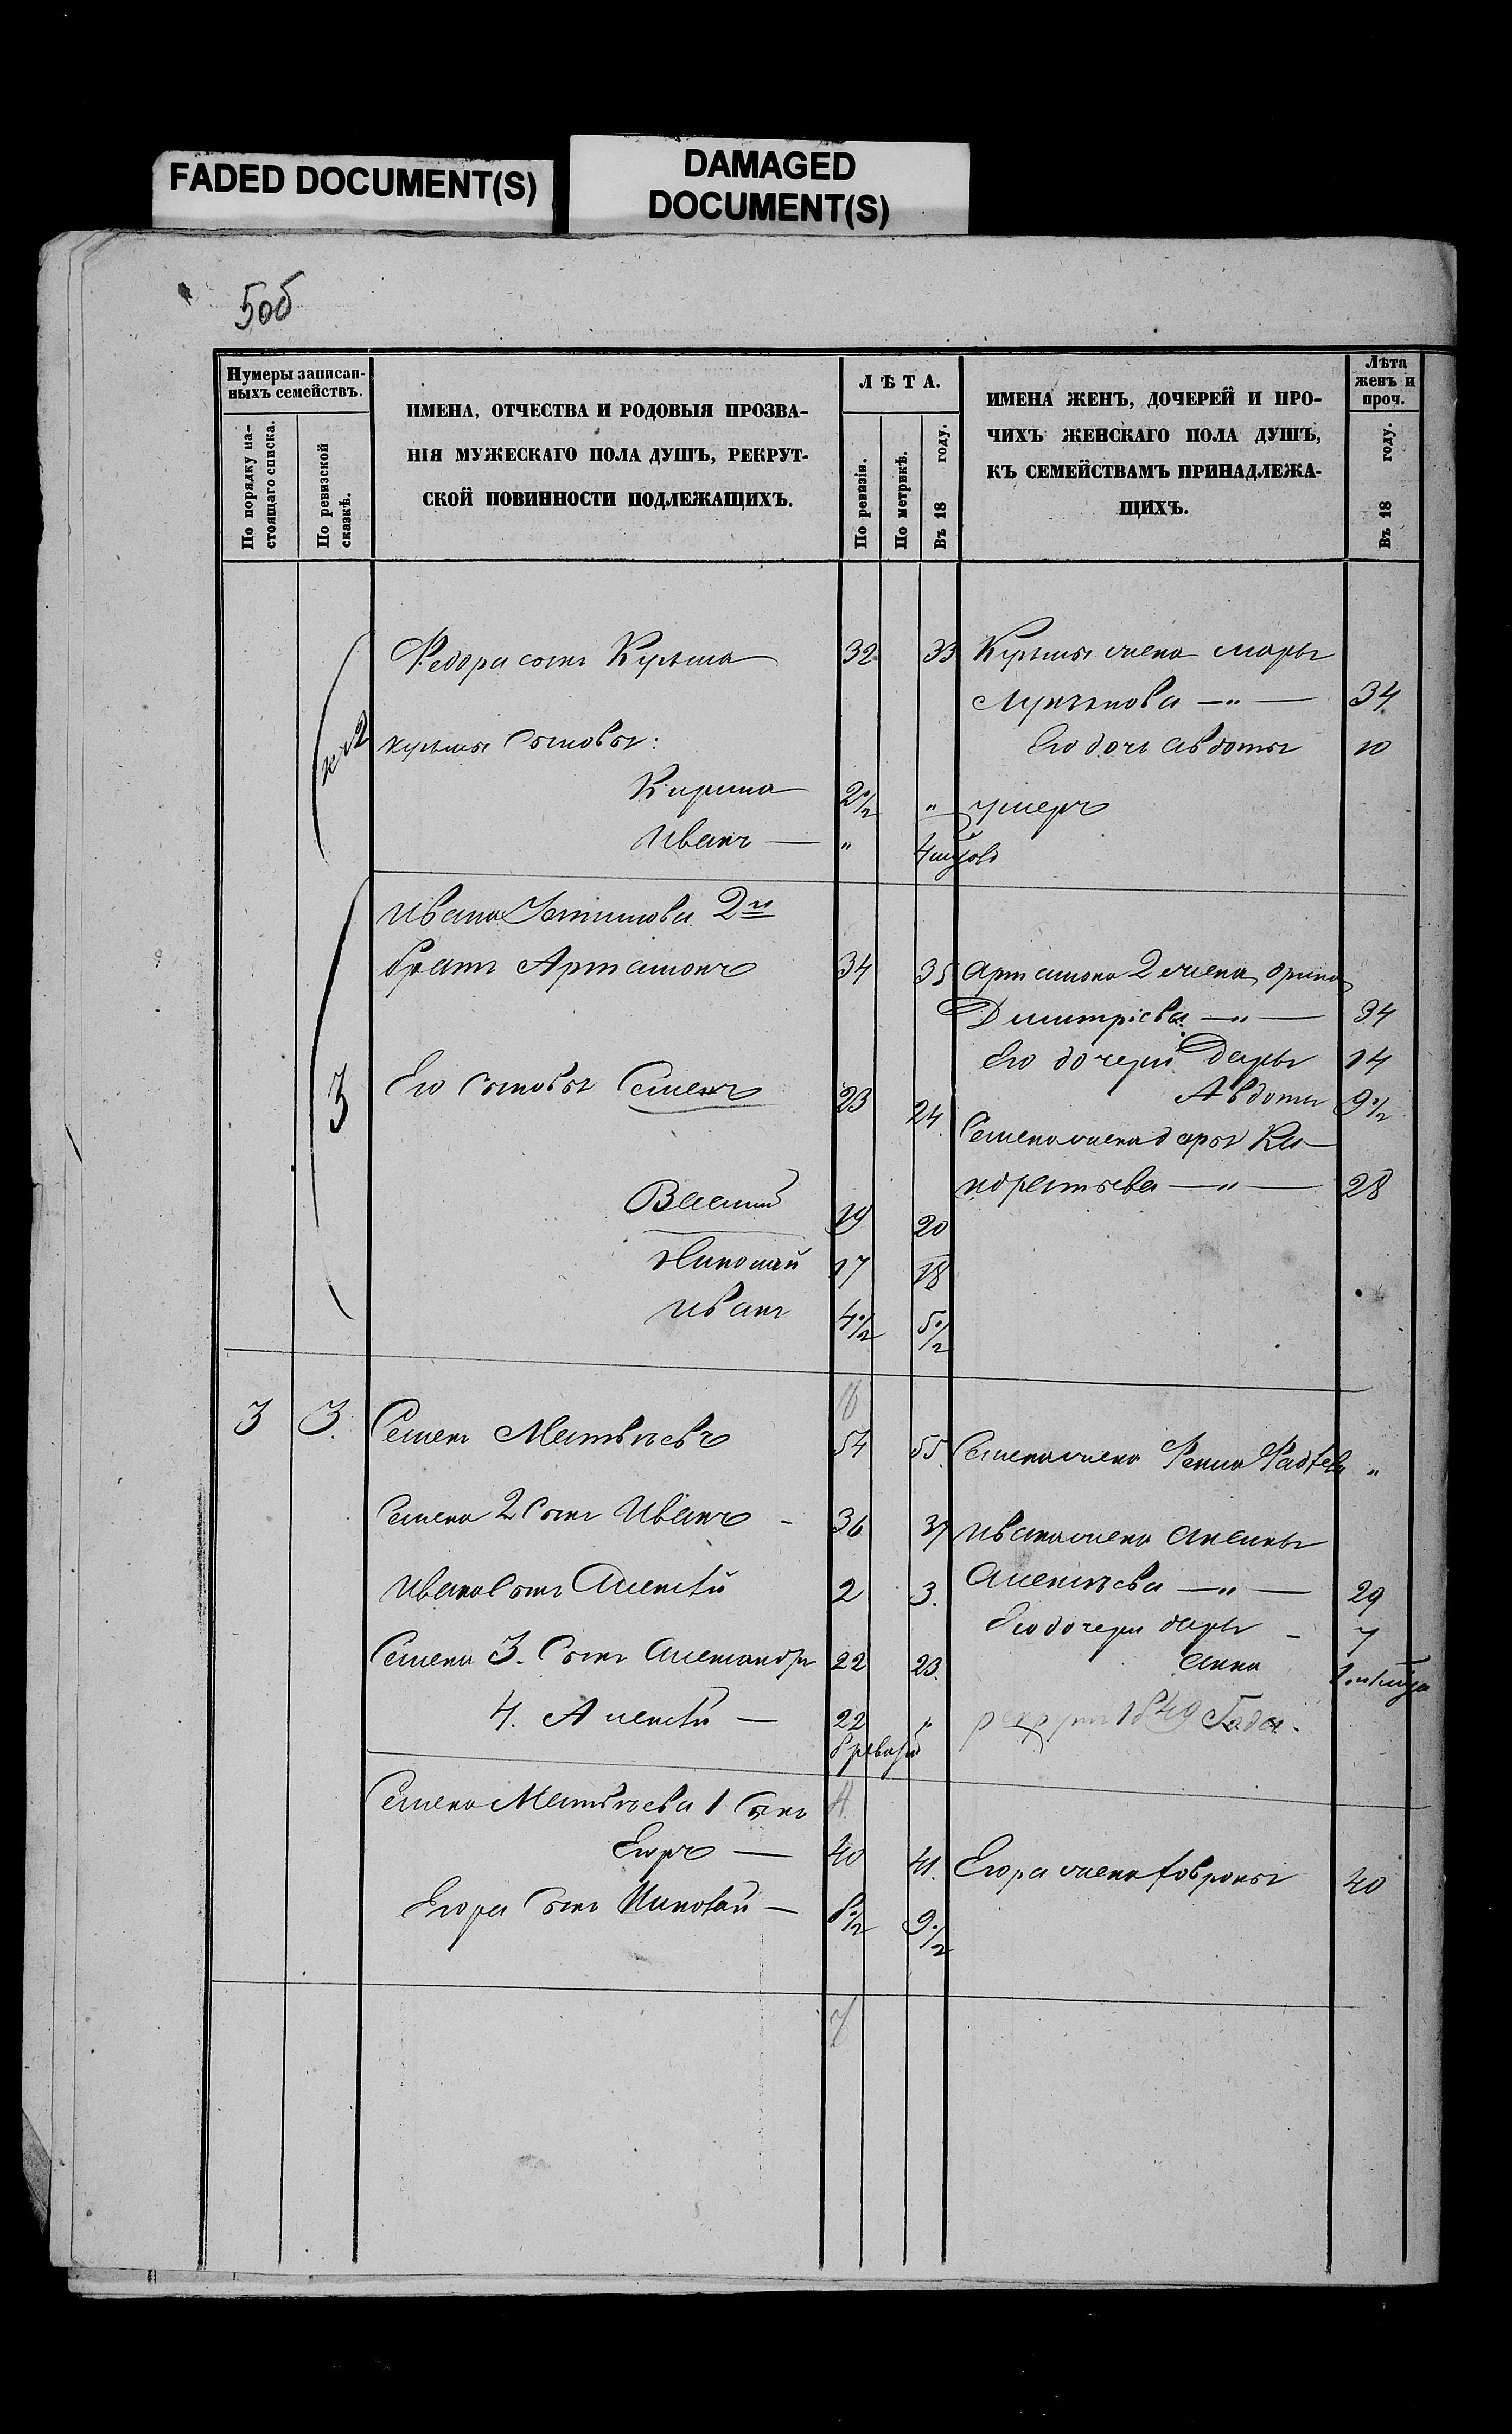 FADED DOCUMENT(S)
DAMAGED
DOCUMENT(S)
50б
Нумеры записан-
ныхъ семействъ.
По порядку на-
стоящаго списка.
По ревизской
сказкѣ.
ИМЕНА, ОТЧЕСТВА И РОДОВЫЯ ПРОЗВА-
НІЯ МУЖЕСКАГО ПОЛА ДУШЪ, РЕКРУТ-
СКОЙ ПОВИННОСТИ ПОДЛЕЖАЩИХЪ.
ЛѢТА.
По ревизіи.
По метрикѣ.
Въ 18 году.
ИМЕНА ЖЕНЪ, ДОЧЕРЕЙ И ПРО-
ЧИХЪ ЖЕНСКАГО ПОЛА ДУШЪ,
КЪ СЕМЕЙСТВАМЪ ПРИНАДЛЕЖА-
ЩИХЪ.
Лѣта
женъ и
проч.
Въ 18 году.
Федора сынъ Кузьма 32 33 Кузьмы жена Марья
— " — 34
Кузьмы Сыновья: Его дочь Авдотья 10
2½ " умеръ
Иванъ — "
Ивана 2й
братъ Артамонъ 34 35 Артамона 2 жена Орина
Дмитріева — " — 34
Его дочери Дарья 14
3 Его Сыновья Семенъ 23 24 Авдотья 9½
Семена жена Дарья Кон
дратьева — " — 28
Василій 19 20
Николай 17 18
Иванъ 4½ 5½
3 3. Семенъ Матвѣевъ 54 55. Семена жена "
Семена 2 Сынъ Иванъ - 36 37 Ивана жена Аксинья
Ивана Сынъ Алексѣй 2 3. Алексѣева — " — 29
Его дочери Дарья - 7
Семена 3. Сынъ Александръ 22 23. Анна
4. Алексѣй — 22 " рекрутъ 1849 Года.
Семена Матвѣева 1 Сынъ
Егоръ — 40 41. Егора жена 40
Егора Сынъ Николай — 8½ 9½